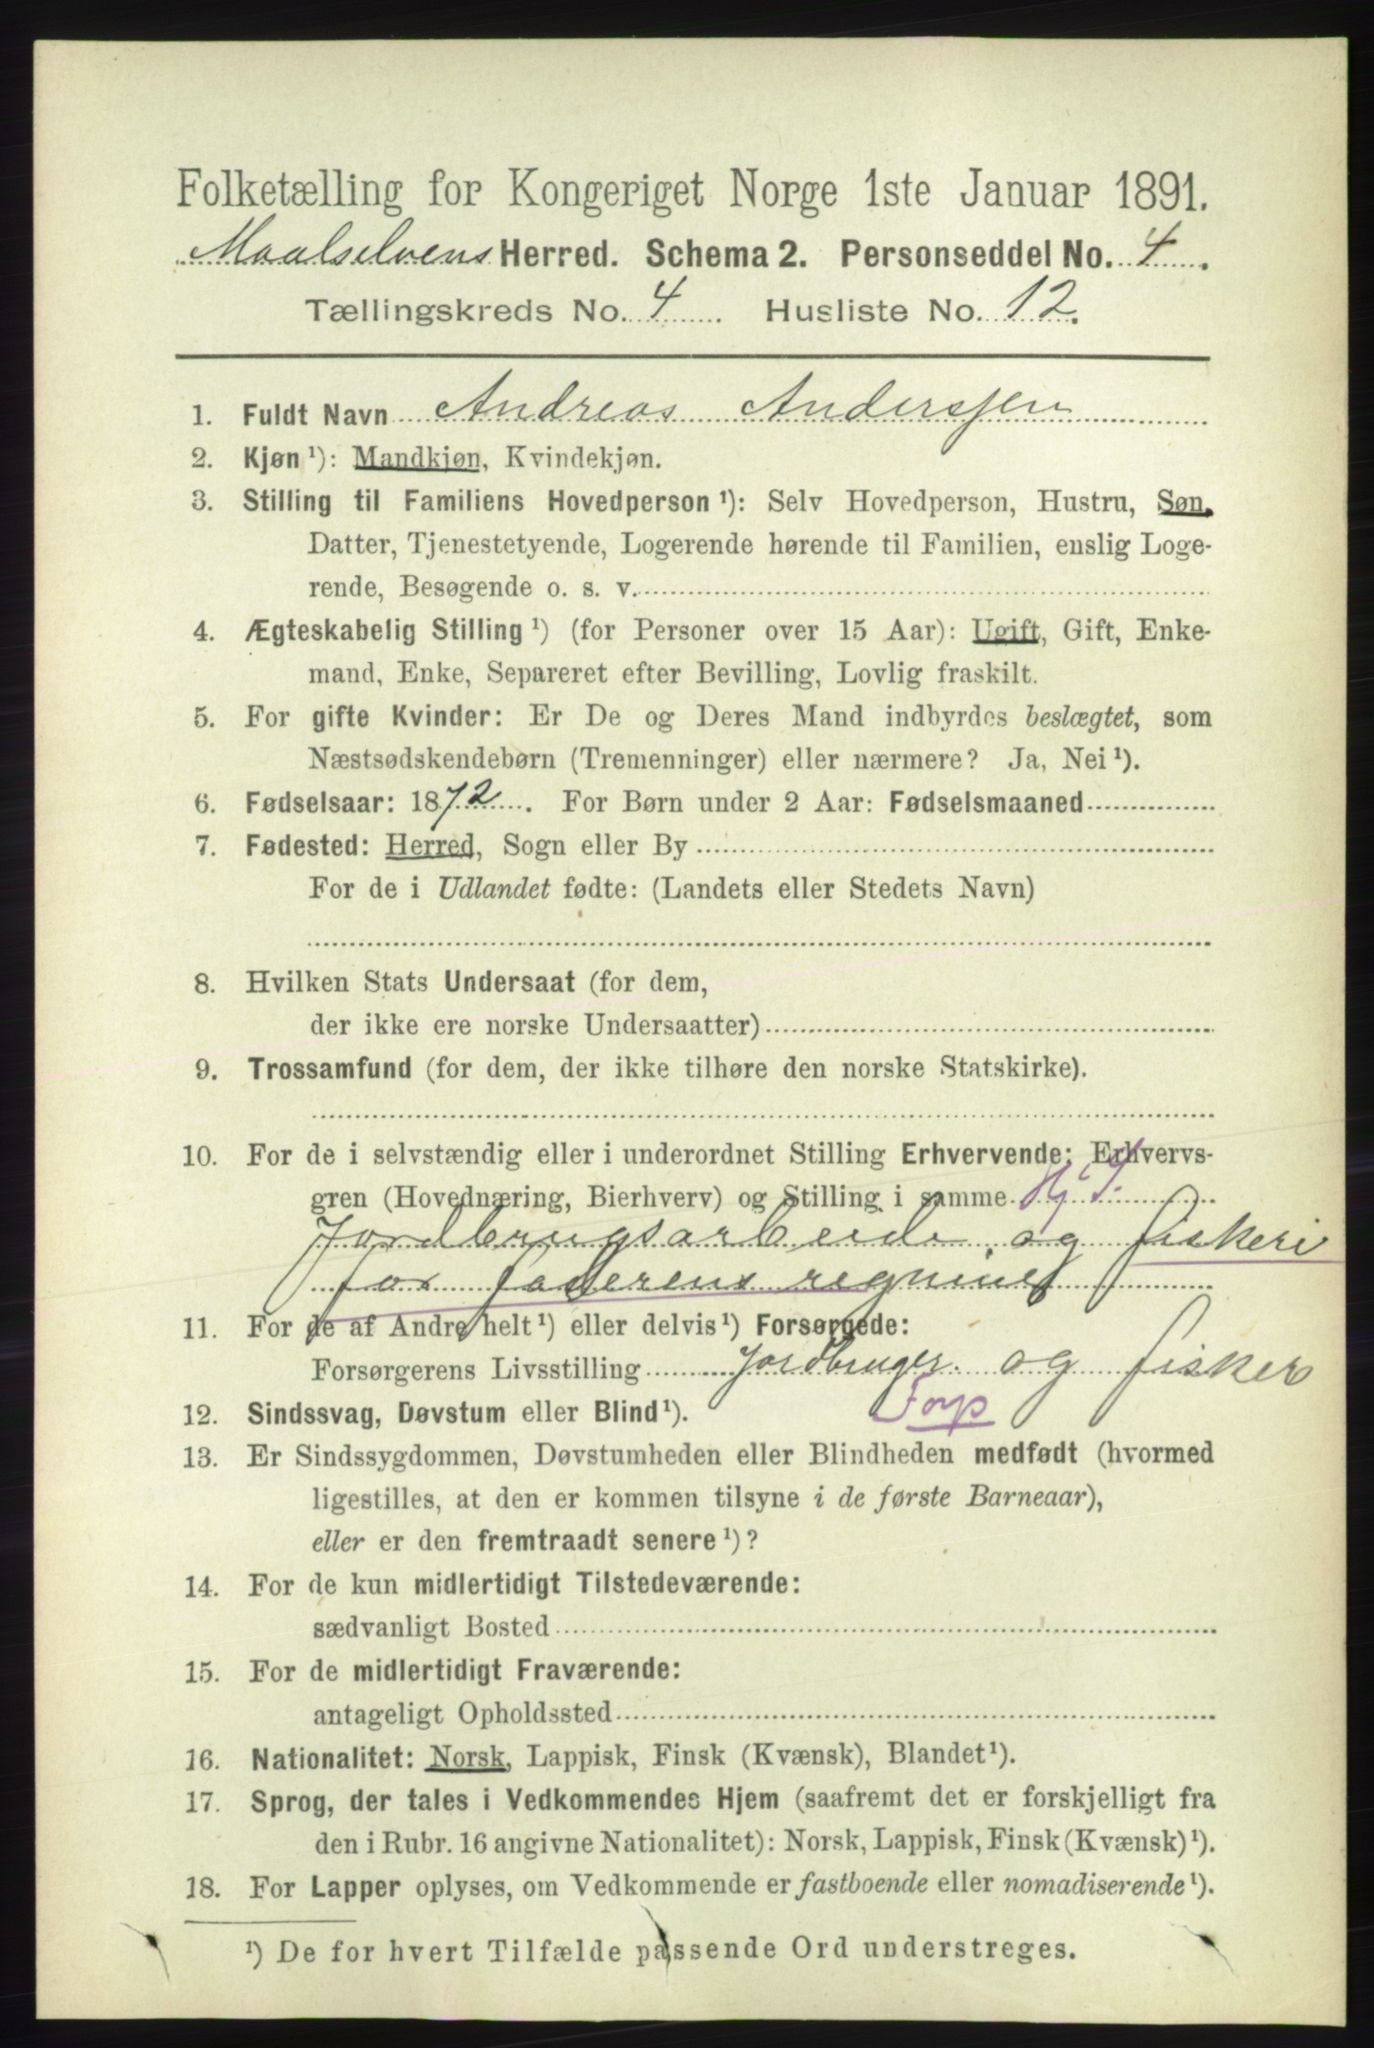 Folketælling for Kongeriget Norge 1ste Januar 1891.
Maalselvens Herred. Schema 2. Personseddel No. 4.
Tællingskreds No. 4 Husliste No. 12.
1. Fuldt Navn Andreas Andersjen
2. Kjøn ¹): Mandkjøn, Kvindekjøn.
3. Stilling til Familiens Hovedperson ¹): Selv Hovedperson, Hustru, Søn,
Datter, Tjenestetyende, Logerende hørende til Familien, enslig Loge-
rende, Besøgende o. s. v.
4. Ægteskabelig Stilling ¹) (for Personer over 15 Aar): Ugift, Gift, Enke-
mand, Enke, Separeret efter Bevilling, Lovlig fraskilt.
5. For gifte Kvinder: Er De og Deres Mand indbyrdes beslægtet, som
Næstsødskendebørn (Tremenninger) eller nærmere? Ja, Nei ¹).
6. Fødselsaar: 1872. For Børn under 2 Aar: Fødselsmaaned
7. Fødested: Herred, Sogn eller By
For de i Udlandet fødte: (Landets eller Stedets Navn)
8. Hvilken Stats Undersaat (for dem,
der ikke ere norske Undersaatter)
9. Trossamfund (for dem, der ikke tilhøre den norske Statskirke).
10. For de i selvstændig eller i underordnet Stilling Erhvervende: Erhvervs-
gren (Hovednæring, Bierhverv) og Stilling i samme
Jordbrugsarbeide og fiskeri
for faderens regning
11. For de af Andre helt ¹) eller delvis ¹) Forsørgede:
Forsørgerens Livsstilling Jordbruger og fisker
12. Sindssvag, Døvstum eller Blind ¹). Forp
13. Er Sindssygdommen, Døvstumheden eller Blindheden medfødt (hvormed
ligestilles, at den er kommen tilsyne i de første Barneaar),
eller er den fremtraadt senere ¹)?
14. For de kun midlertidigt Tilstedeværende:
sædvanligt Bosted
15. For de midlertidigt Fraværende:
antageligt Opholdssted
16. Nationalitet: Norsk, Lappisk, Finsk (Kvænsk), Blandet ¹).
17. Sprog, der tales i Vedkommendes Hjem (saafremt det er forskjelligt fra
den i Rubr. 16 angivne Nationalitet): Norsk, Lappisk, Finsk (Kvænsk) ¹).
18. For Lapper oplyses, om Vedkommende er fastboende eller nomadiserende ¹).
¹) De for hvert Tilfælde passende Ord understreges.